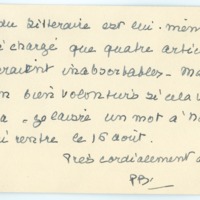 du littéraire est lui-mêm
chargé que quatre artic
raient inabsorbables - Ma
bien volontiers si cela v
a - je laisse un mot à
rentre le 16 août.
Très cordialement
PB.